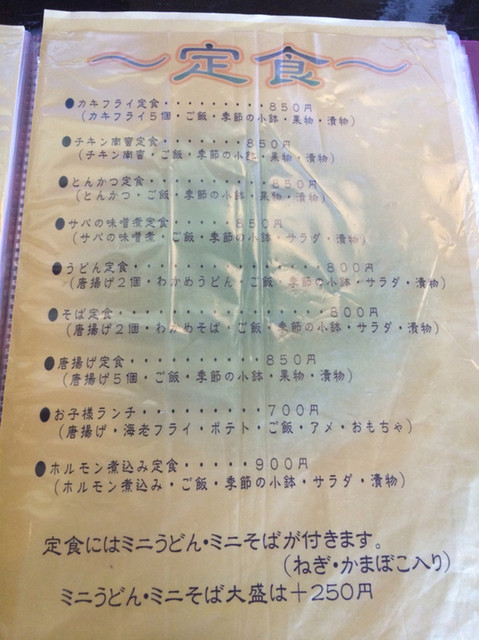 ～定食～
●カキフライ定食・・・・・・・・・850円
(カキフライ5個・ご飯・季節の小鉢・果物・漬物)
●チキン南蛮定食・・・・・・・850円
(チキン南蛮・ご飯・季節の小鉢・果物・漬物)
●とんかつ定食・・・・・・・・・・850円
(とんかつ・ご飯・季節の小鉢・果物・漬物)
●サバの味噌煮定食・・・・・・850円
(サバの味噌煮・ご飯・季節の小鉢・サラダ・漬物)
●うどん定食・・・・・・・・・・・・・・・・800円
(唐揚げ2個・わかめうどん・ご飯・季節の小鉢・サラダ・漬物)
●そば定食・・・・・・・・・・・・・・・・・800円
(唐揚げ2個・わかめそば・ご飯・季節の小鉢・サラダ・漬物)
●唐揚げ定食・・・・・・・・・・850円
(唐揚げ5個・ご飯・季節の小鉢・果物・漬物)
●お子様ランチ・・・・・・・・・・700円
(唐揚げ・海老フライ・ポテト・ご飯・アメ・おもちゃ)
●ホルモン煮込み定食・・・・・・900円
(ホルモン煮込み・ご飯・季節の小鉢・サラダ・漬物)
定食にはミニうどん・ミニそばが付きます。
(ねぎ・かまぼこ入り)
ミニうどん・ミニそば大盛は＋250円